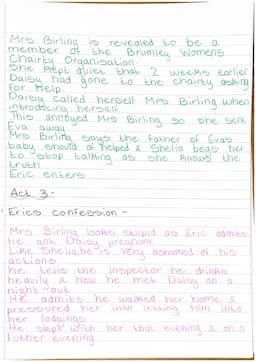 Mrs Birling is revealed to be a
member of the Brumley Womens
Chairty Organisation.
She kept quiet that 2 weeks earlier
Daisy had gone to the chairty asking
for help.
Daisy called herself Mrs Birling when
introducing herself
This annoyed Mrs Birling so she sent
Eva away
Mrs Birling says the father of Evas
baby should of helped & Shelia begs her
to stop talking as she knows the
truth
Eric enters
Act 3-
Erics confession -
Mrs Birling looks stupid as Eric admits
he got Daisy pregnant
Like Shelia, he is very ashamed of his
actions
he tells the inspector he drinks
heavily & how he met Daisy on a
night out
He admits he walked her home &
pressured her into letting him into
her lodgings
He slept with her that evening & on a
futher evening